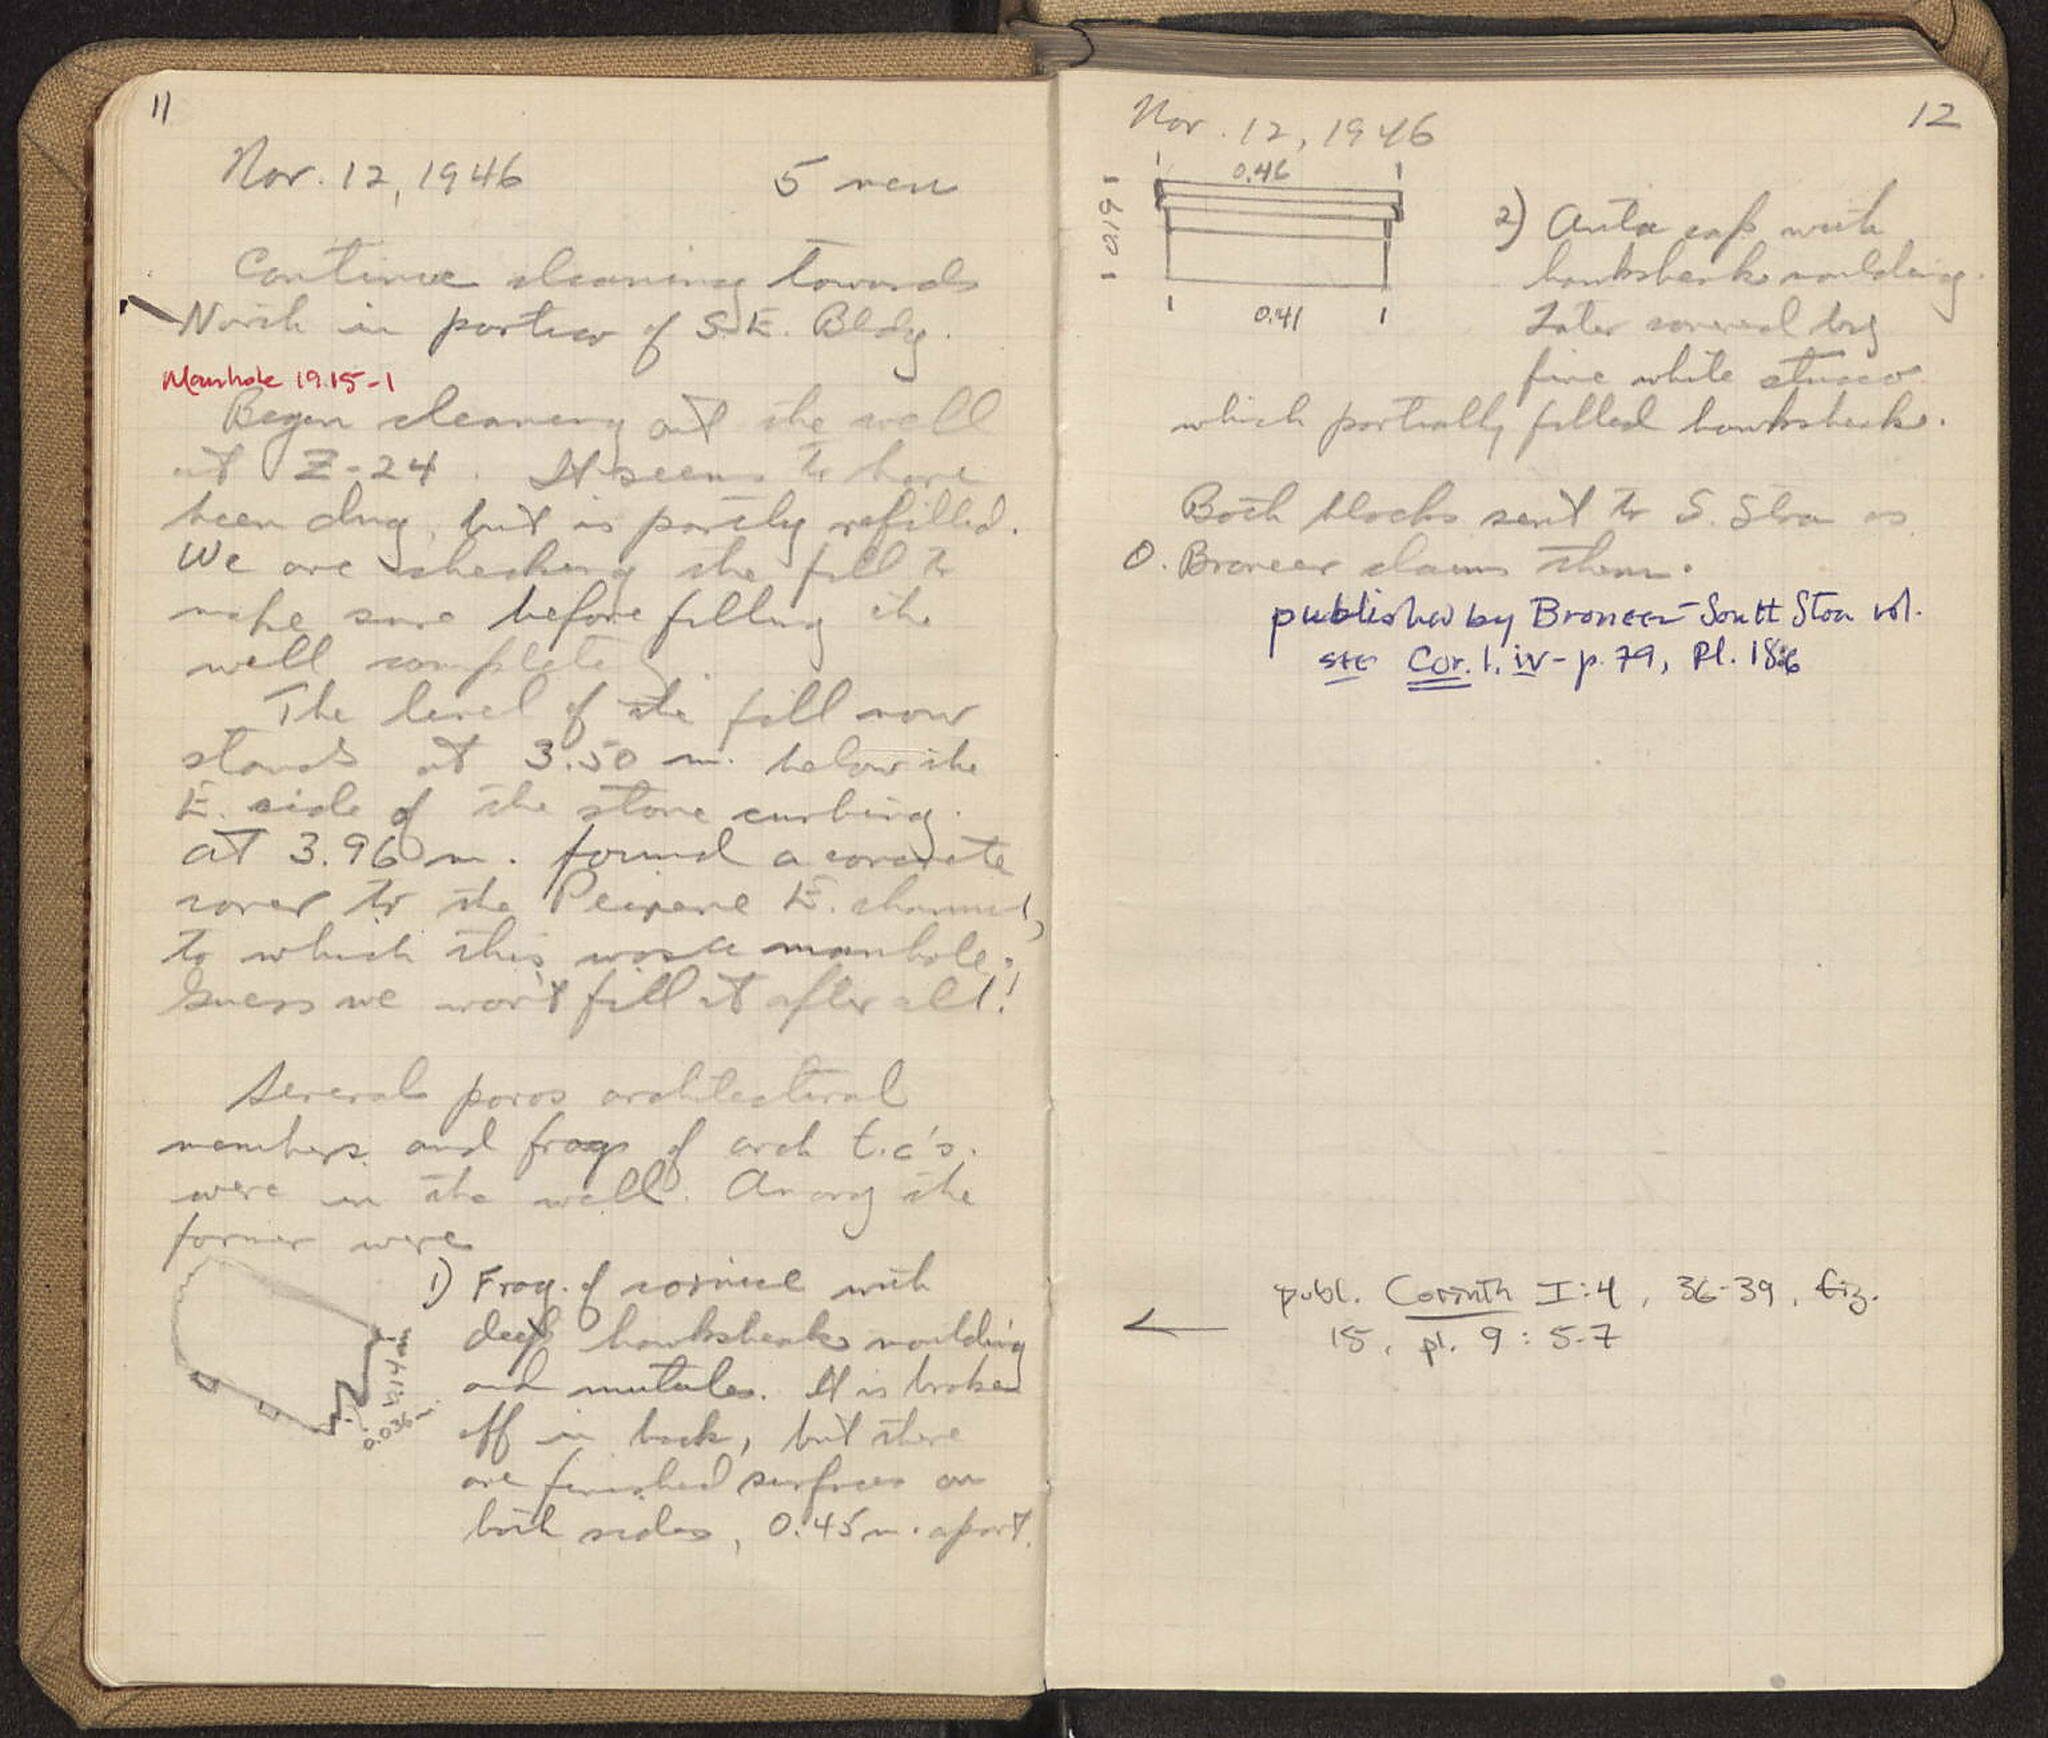 11
Nov. 12, 1946 5 men
Continue cleaning towards
North in portico of S.E. Bldg.
Manhole 19.15-1
Began cleaning out the well
at Z-24. It seems to have
been dug, but is partly refilled.
We are checking the fill to
make sure before filling the
well completely.
The level of the fill now
stands at 3.50 m. below the
E. side of the stone curbing.
at 3.96 m. found a concrete
cover to the Peirene E. channel,
to which this was a manhole.
Guess we won't fill it after all!
Several poros architectural
members and frags of arch t.c's.
were in the well. Among the
former were
1) Frag. of cornice with
deep hawksbeak moulding
and mutules. It is broken
off in back, but there
are finished surfaces on
both sides, 0.45 m. apart.
0.14 m
0.036 m.
12
Nov. 12, 1946
0.46
0.19
0.41
2) Anta cap with
hawksbeak moulding.
Later covered by
fine white stucco
which partially filled hawksbeak.
Both blocks sent to S. Stoa as
O. Broneer claims them.
published by Broneer - South Stoa vol.
Cor. I. iv - p. 79, Pl. 18:6
publ. Corinth I:4, 36-39, fig.
15, pl. 9:5-7